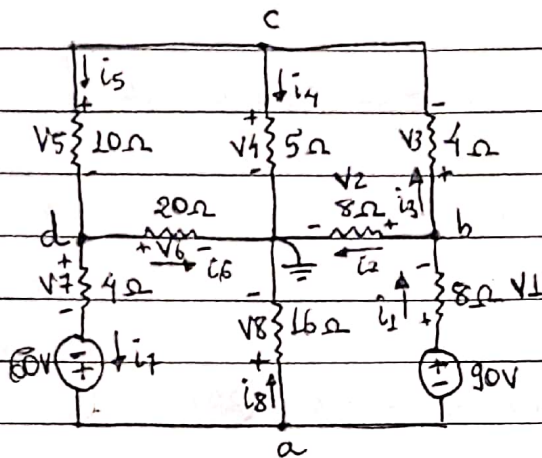 c
i5 i4
+ + -
V5 10Ω V4 5Ω V3 4Ω
- - i3 +
20Ω V2 8Ω
d + V6 - i6 - + i2 b
+ - -
V7 4Ω V8 16Ω i1 8Ω V1
- + +
60V - + i7 i8 + - 90V
a